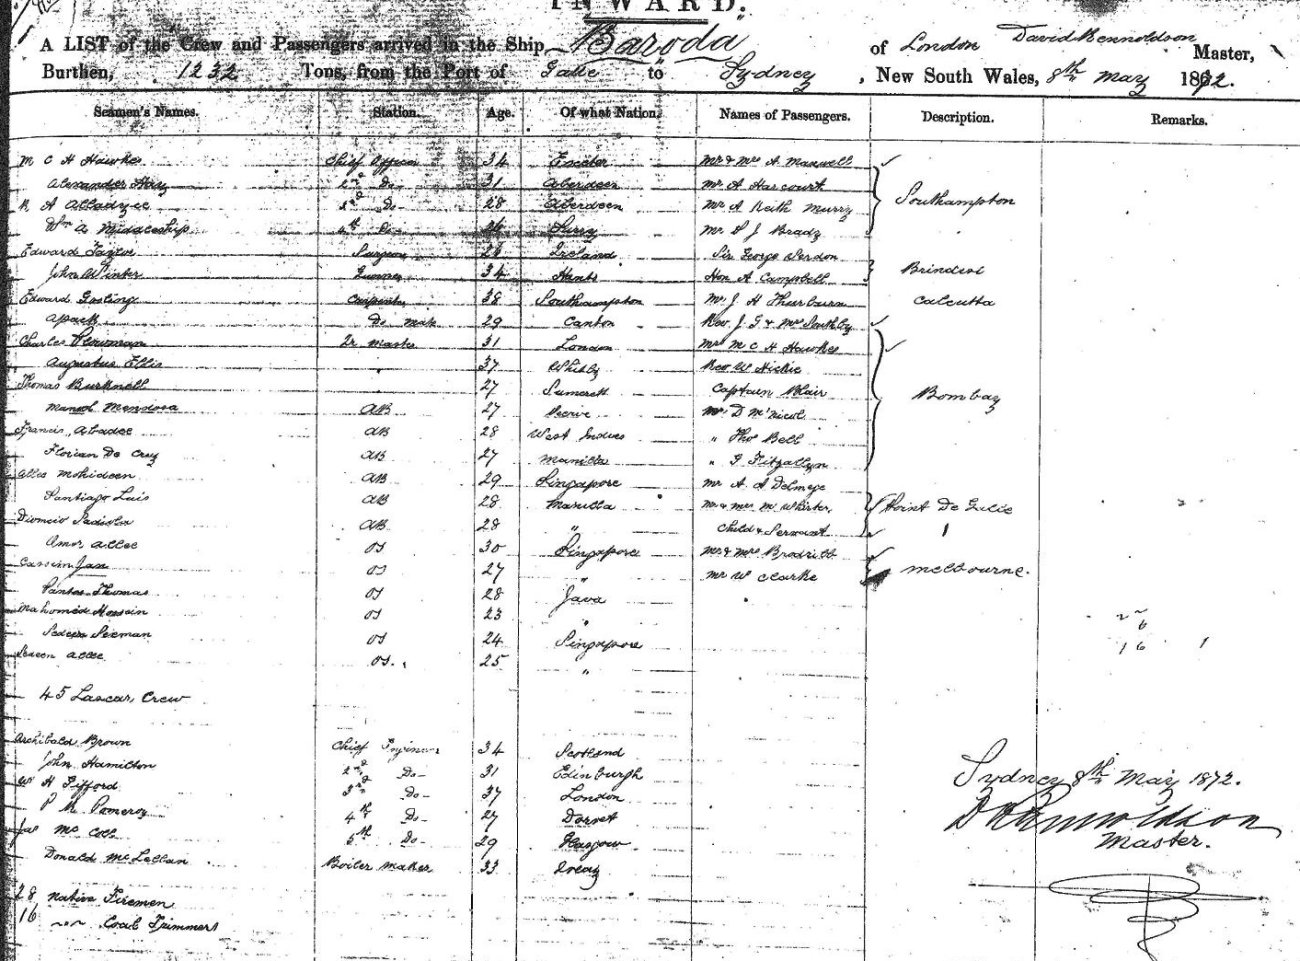 INWARD.
A LIST of the Crew and Passengers arrived in the Ship Baroda of London David Rennoldson Master,
Burthen, 1232 Tons, from the Port of Galle to Sydney, New South Wales, 8th May 1872.
Seamen's Names. Station. Age. Of what Nation. Names of Passengers. Description. Remarks.
M C H Hawkes Chief Officer 34 Exeter Mr & Mrs A Maxwell
Alexander Hay 2nd Do 31 Aberdeen Mr A Harcourt
A 3rd Do 28 Aberdeen Mr A Keith Murry Southampton
Wm A Middleship 4th Do 26 Surry Mr J Brady
Edward Taylor Surgeon Ireland Sir George
John Winter Gunner 34 Hants Hon A Campbell Brindisi
Edward Gosling Carpenter 38 Southampton Mr J H Thurburn Calcutta
Apack Do mate 29 Canton Rev J G & Mrs Southby
Charles Plowman Qr Master 31 London Mrs M C H Hawkes
Augustus Ellis 37 Whitby Rev W Hickie
Thomas Burknell 27 Sumersett Captain Blair Bombay
Mendosa AB 27 Mr D McNicol
Francis Abadee AB 28 West Indies " Thos Bell
Florian De Cruz AB 27 Manilla "
Alles Mohideen AB 29 Singapore Mr A A Delmege
Santiago Luis AB 28 Manilla Mr & Mrs McWhirter, Point De Galle
AB 28 " Child & Servant 1
Amor Allee OS 30 Singapore Mr & Mrs Brodribb
Cassim Jan OS 27 " Mr W Clarke Melbourne.
Santos Thomas OS 28 Java
Mahomed Hossein OS 23 "
Seeman OS 24 Singapore 16 1
Allee OS. 25 "
45 Lascar, Crew
Archibald Brown Chief Engineer 34 Scotland
John Hamilton 2nd Do 31 Edinburgh Sydney 8th May 1872.
W H Gifford 3rd Do 37 London D Rennoldson
P M Pomeroy 4th Do 27 Dorset Master.
Jas Mc Coll 5th Do 29 Glasgow
Donald McLellan Boiler maker 33
28 Native Firemen
16 Coal Trimmers